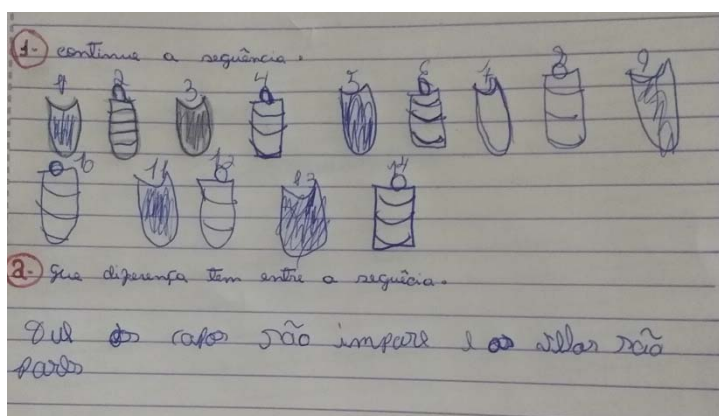 1- continue a sequência.
1 2 3 4 5 6 7 8 9
10 11 12 13 14
2- que diferença tem entre a sequêcia.
Que os capos são impare e as vellas são
pares